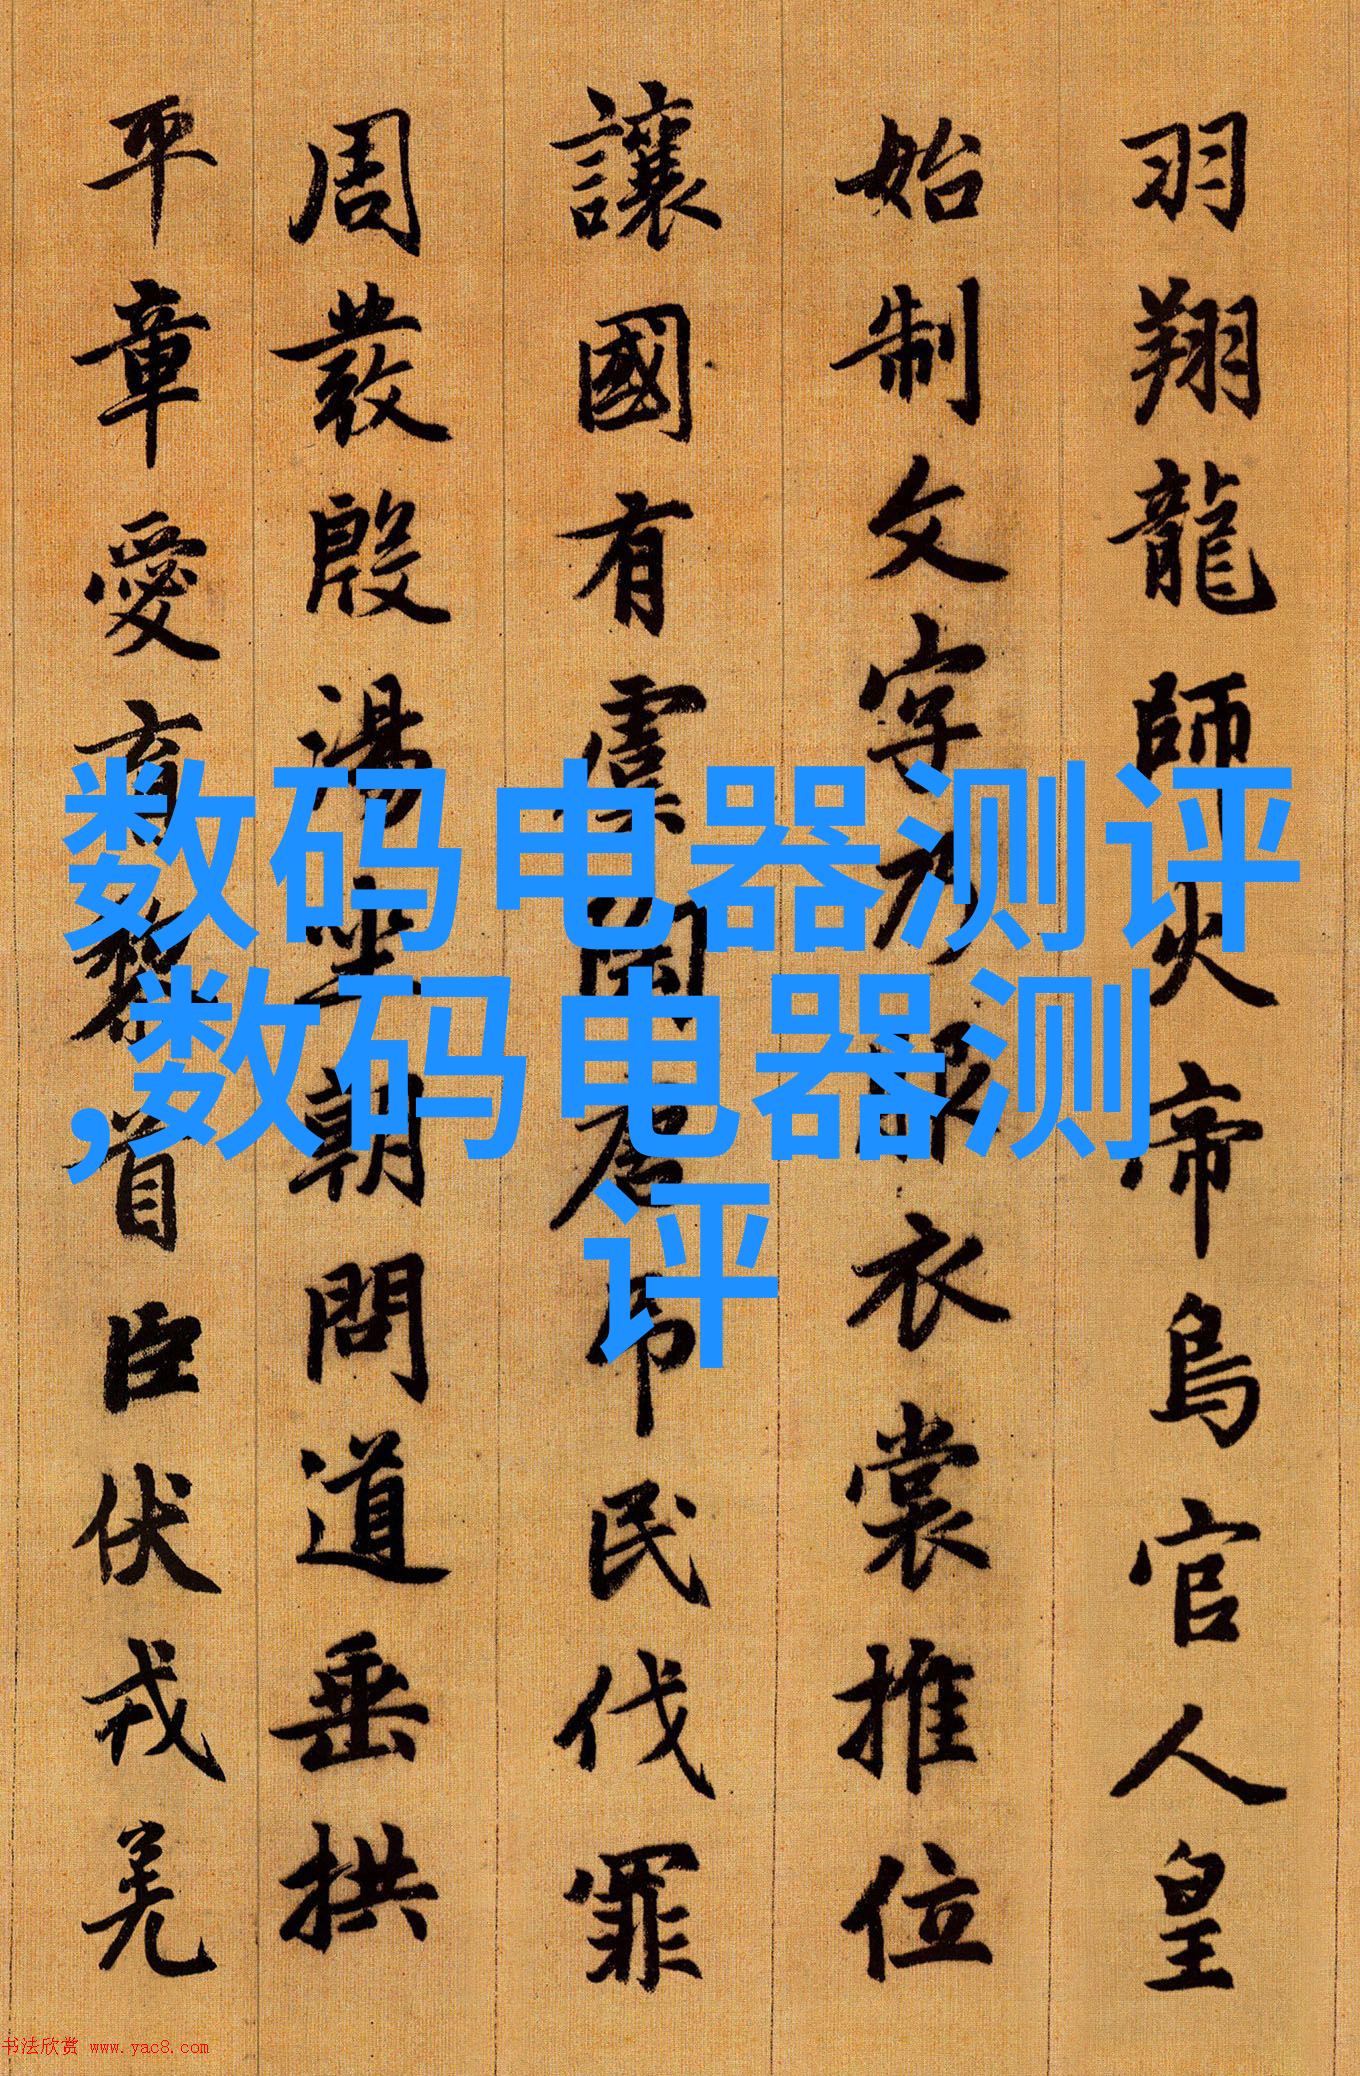 羽翔龍師火帝鳥官人皇
始制文字乃服衣裳推位
讓國有虞陶唐吊民伐罪
周發殷湯坐朝問道垂拱
平章愛育黎首臣伏戎羌
数码电器测评
,数码电器测
评
书法欣赏 www.yac8.com